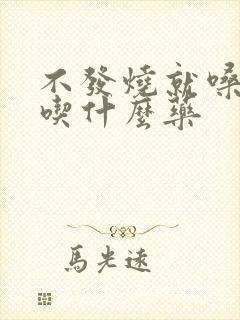 不發燒就嗓
喫什麼藥
馬光遠